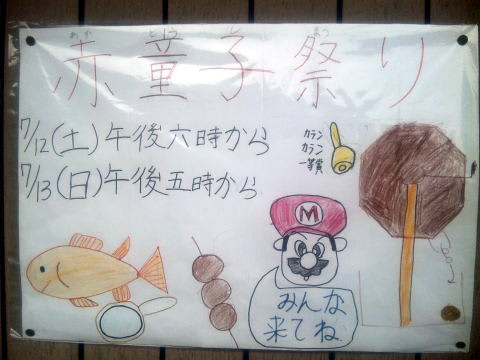 あか どう じ まつ
赤童子祭り
7/12(土)午後六時から
7/13(日)午後五時から
カラン
カラン
一等賞
M
みんな
来てね